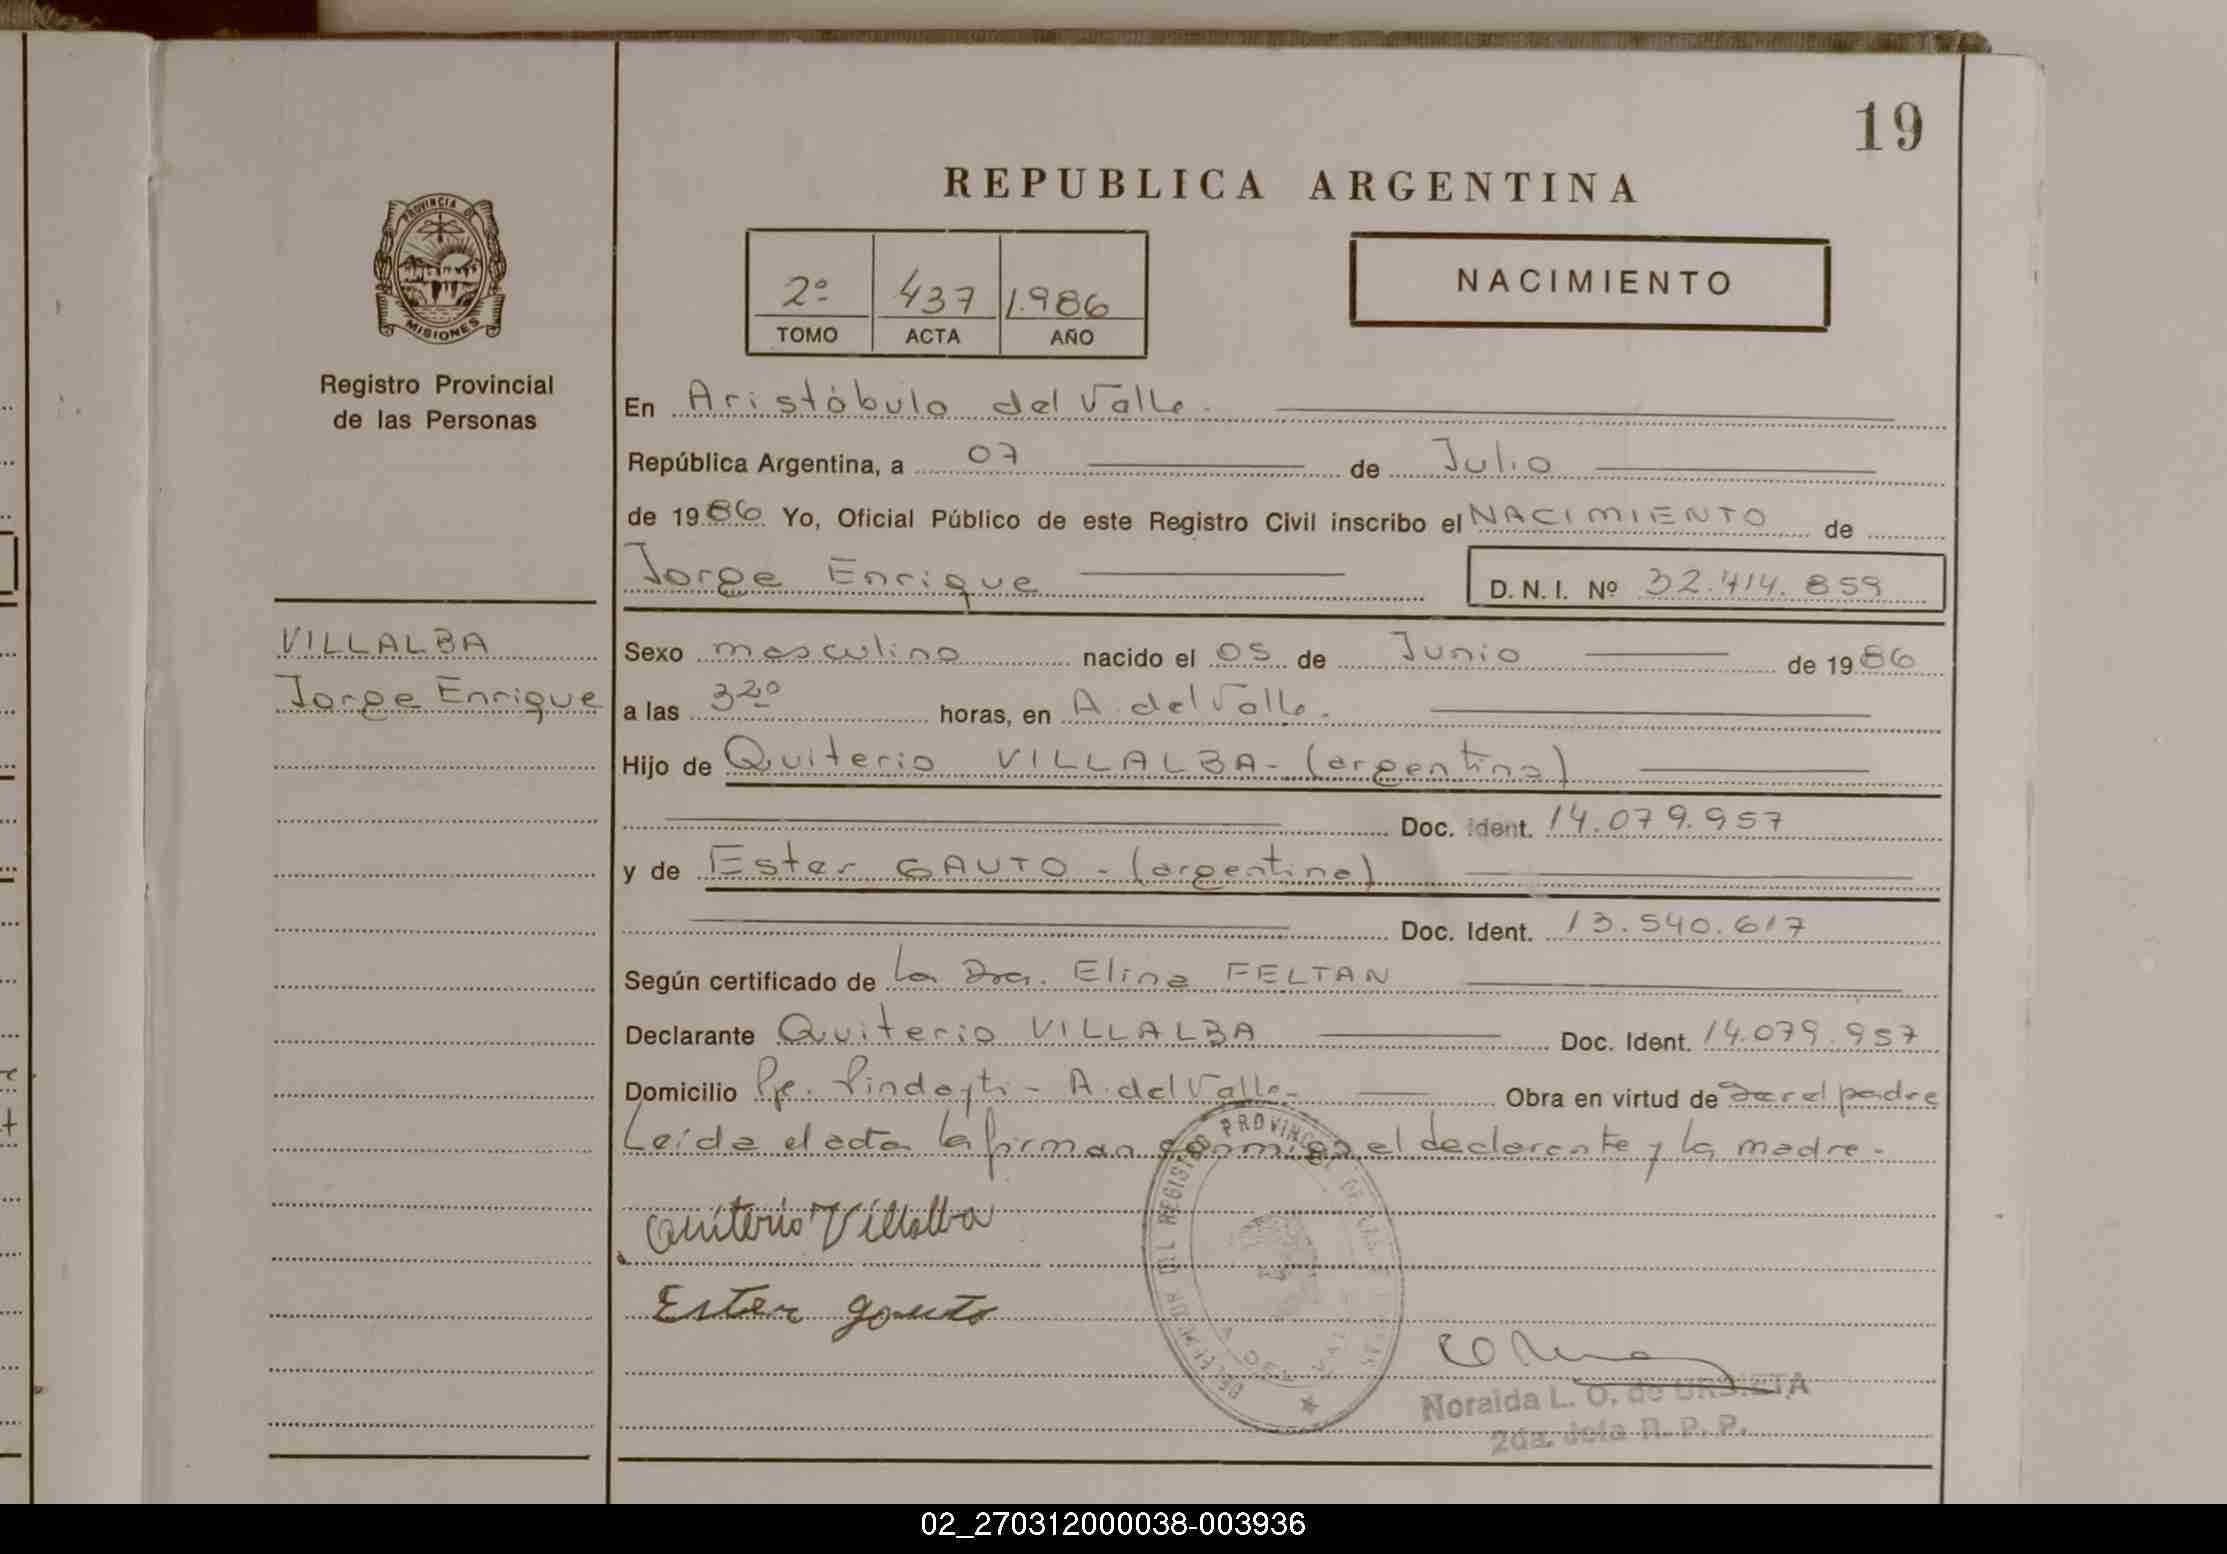 19
REPUBLICA ARGENTINA
PROVINCIA DE
MISIONES
Registro Provincial
de las Personas
2º 437 1.986
TOMO ACTA AÑO
NACIMIENTO
En Aristóbulo del Valle.
República Argentina, a 07 de Julio
de 1986 Yo, Oficial Público de este Registro Civil inscribo el NACIMIENTO de
Jorge Enrique D.N.I. Nº 32.414.859
VILLALBA
Jorge Enrique
Sexo masculino nacido el 05 de Junio de 1986
a las 3²⁰ horas, en A. del Valle.
Hijo de Quiterio VILLALBA - (argentina)
Doc. Ident. 14.079.957
y de Ester GAUTO - (argentina)
Doc. Ident. 13.540.617
Según certificado de la Dra. Elina FELTAN
Declarante Quiterio VILLALBA Doc. Ident. 14.079.957
Domicilio A. del Valle - Obra en virtud de ser el padre
Leída el acta la firman conmigo el declarante y la madre.
Quiterio Villalba
Ester gauto
DEL REGISTRO PROVINCIAL DE LAS
Noraida L. O. de
2da. R. P. P.
02_270312000038-003936